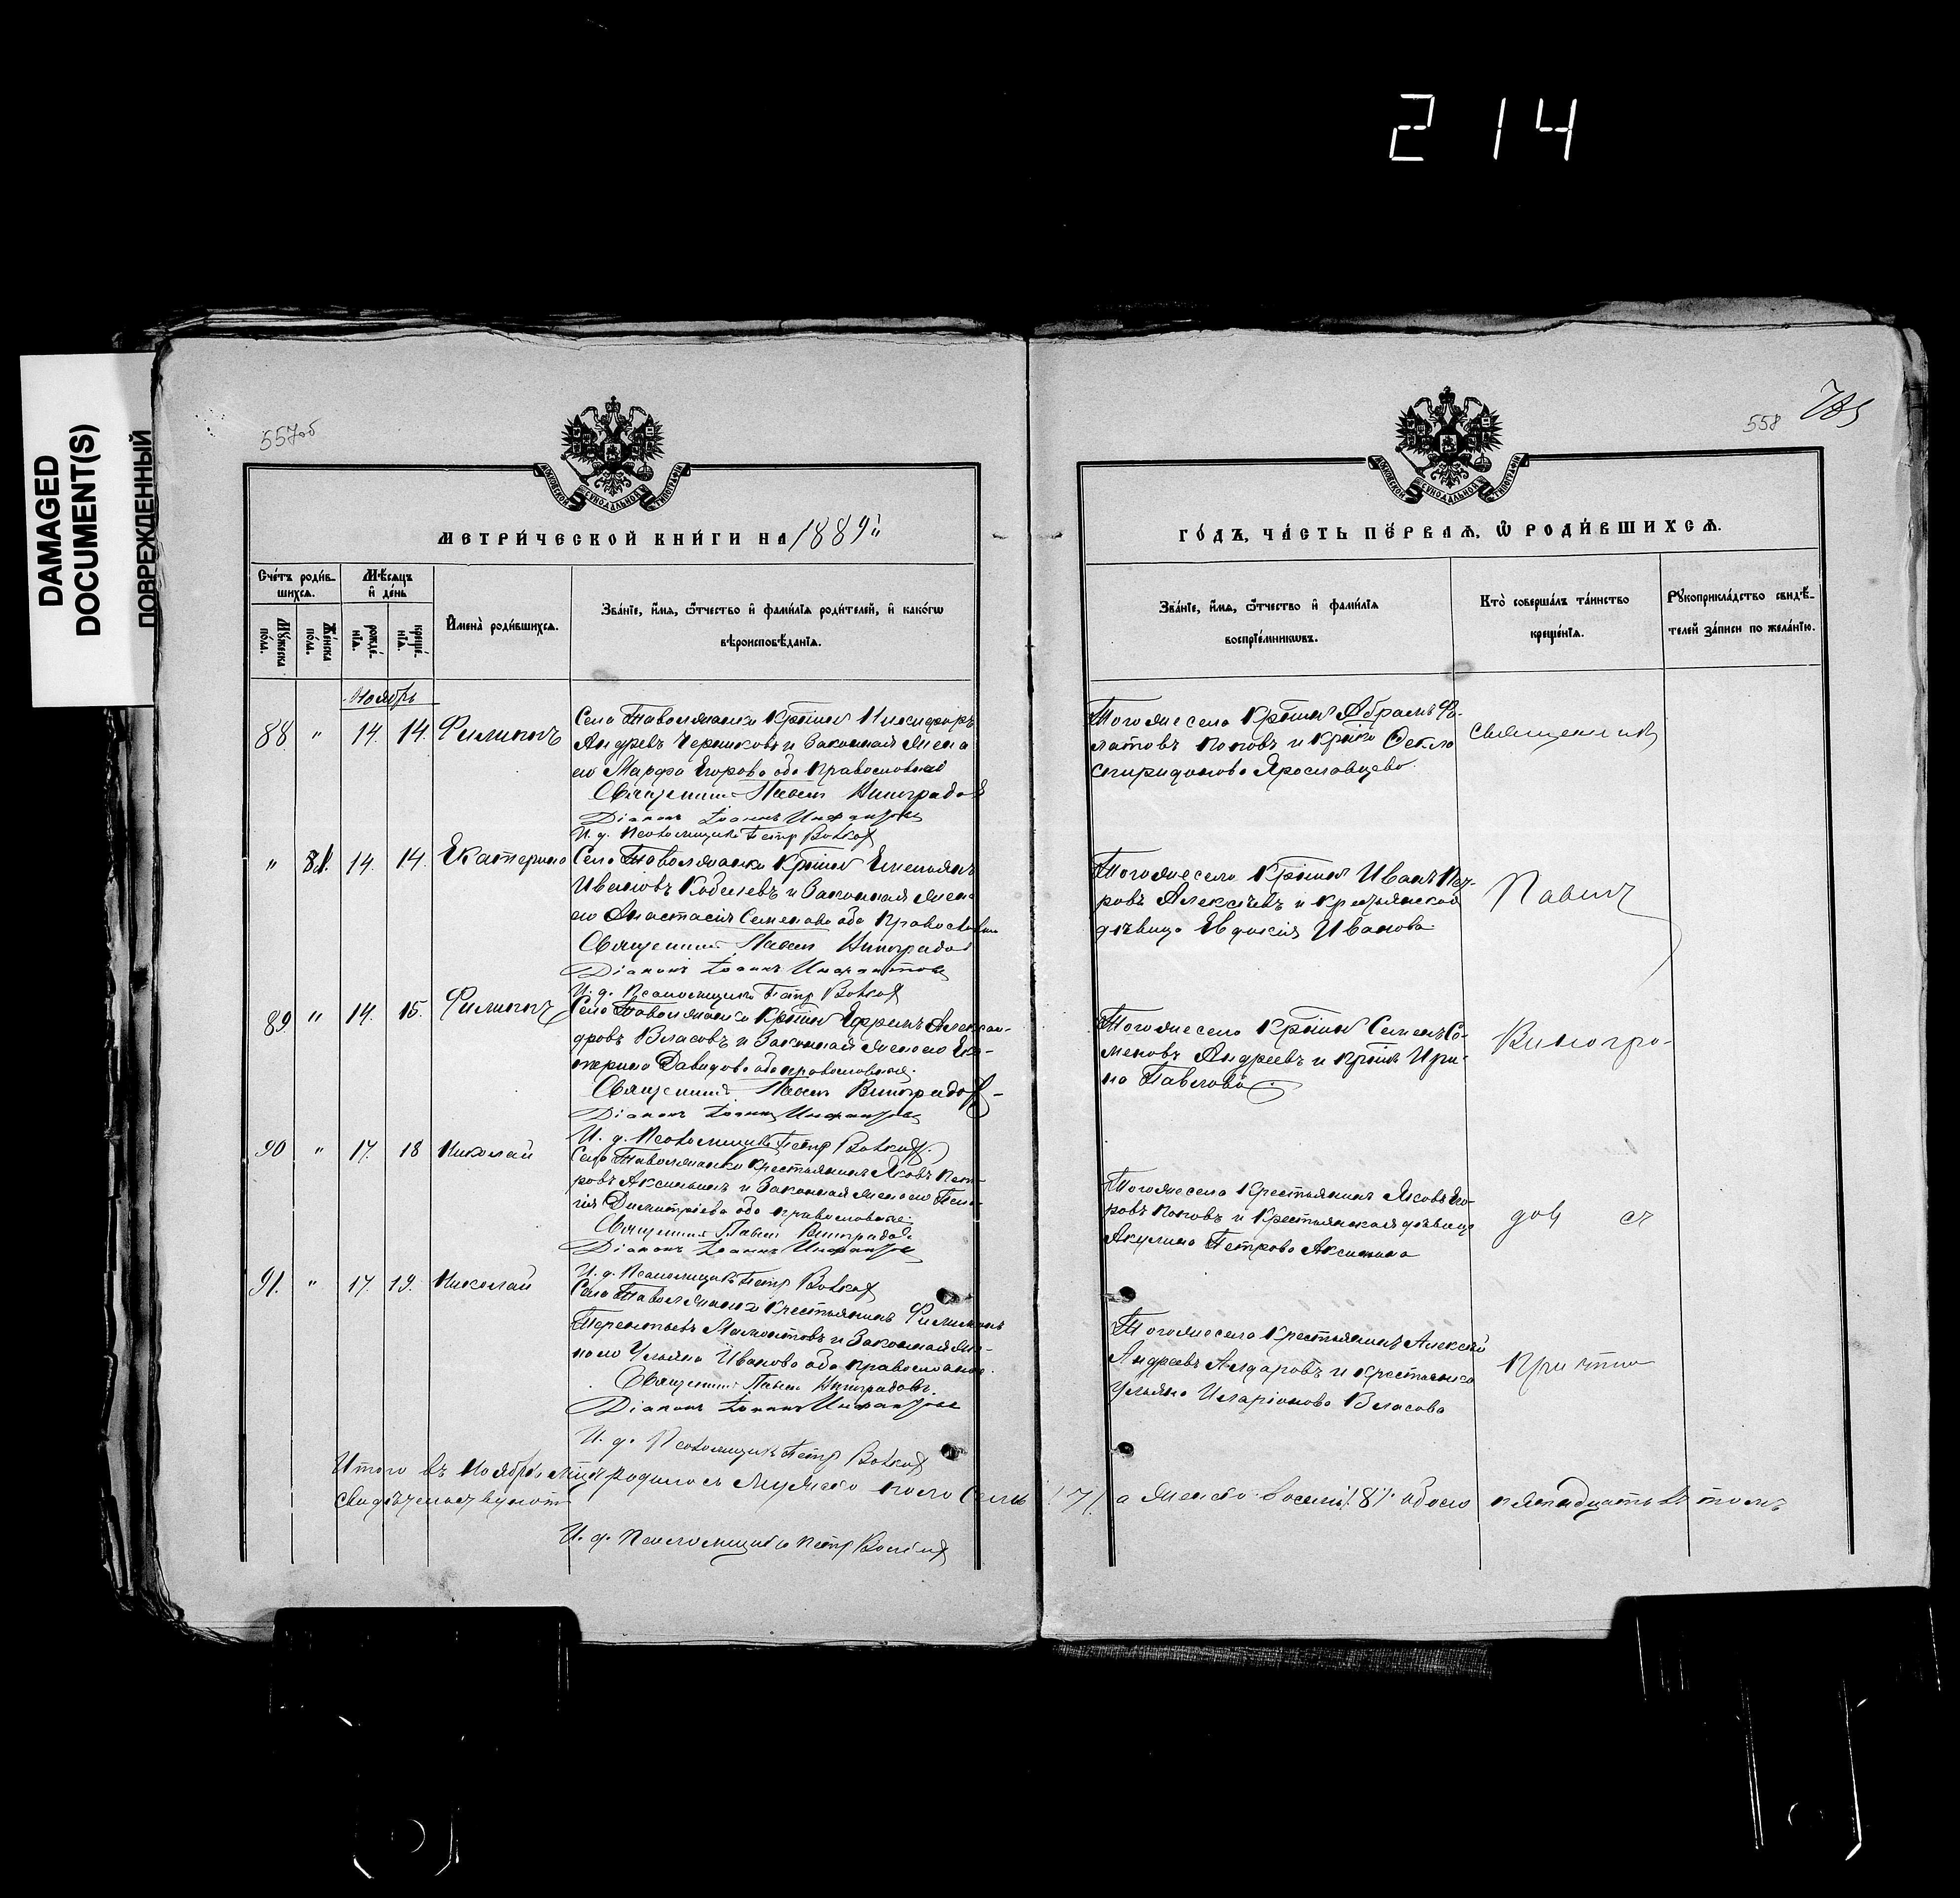 2 14
DAMAGED
DOCUMENT(S)
ПОВРЕЖДЕННЫЙ
557об
МОСКОВСКОЙ СѴНОДАЛЬНОЙ ТИПОГРАФІИ
МЕТРИ́ЧЕСКОЙ КНИ́ГИ НА 1889й
Сче́тъ роди́в-
шихсѧ.
Мѣ́сѧцъ
и҆ де́нь
Мꙋ́жеска
по́ла.
Же́нска
по́ла.
рожде́-
нїѧ.
креще́-
нїѧ.
И҆мена̀ роди́вшихсѧ.
Зва́нїе, и҆́мѧ, ѻ҆́тчество и҆ фами́лїѧ роди́телей, и҆ како́гѡ
вѣроисповѣ́данїѧ.
Ноябрь
88 " 14. 14. Филиппъ
Села Таволжанки Кртнинъ Никифоръ
Андреевъ Черников и законная жена
его Марфа Егорова оба православной
Священник Павел Виноградов
Діаконъ Іоаннъ
И. д. Псаломщика Петр Волков
" 81. 14. 14. Екатерина
Села Таволжанки Кртнинъ Емельянъ
Ивановъ Кобелевъ и законная жена
его Анастасія Семенова оба Православные
Священник Павел Виноградов
Діаконъ Іоаннъ
И. д. Псаломщика Петр Волков
89. " 14. 15. Филиппъ
Села Таволжанки Кртнинъ Ефремъ Алексан-
дровъ Власовъ и Законная жена его Ека-
терина Давидова оба православные.
Священник Павел Виноградов
Діаконъ Іоаннъ
И. д. Псаломщика Петр Волков
90 " 17. 18 Николай
Села Таволжанки Крестьянинъ Яковъ Пет-
ровъ Аксининъ и Законная жена его Пела-
гія Димитріева оба православные.
Священник Павел Виноградов
Діаконъ Іоаннъ
И. д. Псаломщика Петр Волков
91. " 17. 19. Николай
Села Таволжанки Крестьянинъ Филимонъ
Терентьевъ Мамонтовъ и Законная же-
на его Ульяна Иванова оба православные.
Священник Павел Виноградовъ.
Діаконъ Іоаннъ
И. д. Псаломщика Петр Волков
Итого въ Ноябрѣ мцѣ родилось мужеска пола семь /7/ а женска восемь /8/ обоего пятнадцать въ томъ
свидѣтельствуютъ
И. д. Псаломщика Петр Волков
558
МОСКОВСКОЙ СѴНОДАЛЬНОЙ ТИПОГРАФІИ
ГО́ДЪ, ЧА́СТЬ ПЕ́РВАѦ, Ѡ҆ РОДИ́ВШИХСѦ.
Зва́нїе, и҆́мѧ, ѻ҆́тчество и҆ фами́лїѧ
воспрїе́мникѡвъ.
Кто̀ соверша́лъ та́инство
креще́нїѧ.
Рꙋкоприкла́дство свидѣ́-
телей за́писи по жела́нїю.
Тогоже села Кртнинъ Абрамъ Фи-
латовъ Поповъ и Кртнка Өекла
Спиридонова Ярославцева.
Священникъ
Тогоже села Кртнинъ Иванъ Пет-
ровъ Алексѣевъ и крестьянская
дѣвица Евдокія Иванова.
Павелъ
Тогоже села Кртнинъ Семенъ Се-
меновъ Андреевъ и Кртнка Ири-
на Павлова.
Виногра-
Тогоже села Крестьянинъ Яковъ Его-
ровъ Поповъ и Крестьянская дѣвица
Акулина Петрова Аксинина
довъ съ
Тогоже села Крестьянинъ Алексѣй
Андреевъ Алдаровъ и крестьянка
Ульяна Иларіонова Власова
Причтом